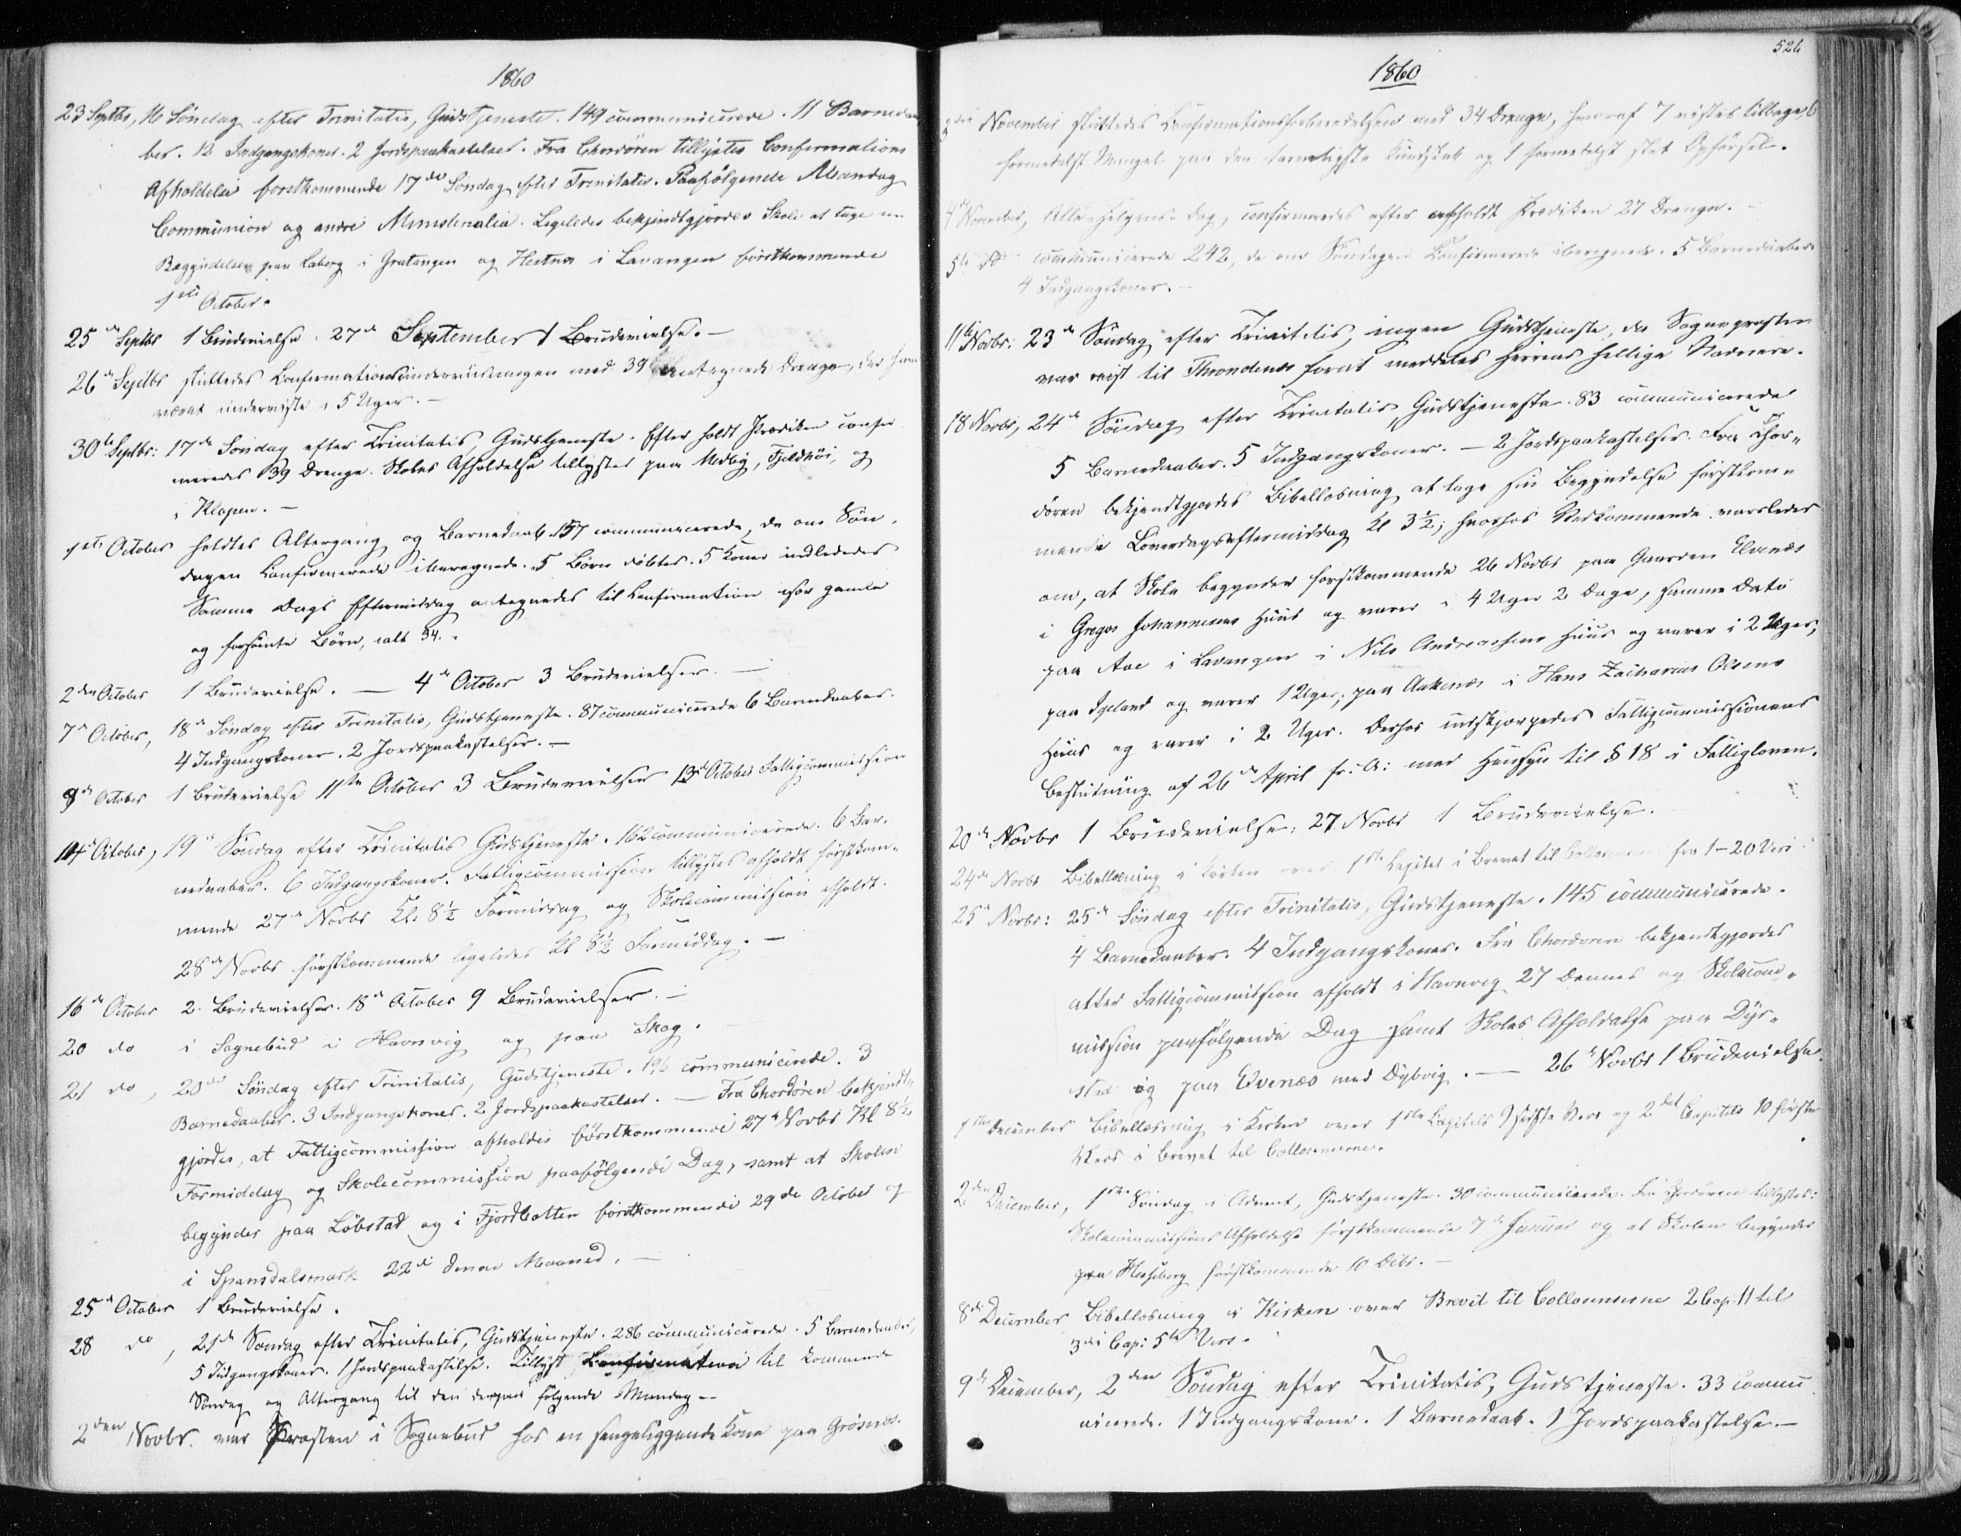 1860
23 Septbr, 16 Søndag efter Trinitatis, Gudstjeneste. 149 communicerede. 11 Barnedaa
ber. 12 Indgangskoner. 2 Jordspaakastelser. Fra Chordören tillystes Confirmations
Afholdelse førstkommende 17de Søndag efter Trinitatis. Paafølgende Mandag
Communion og andre Ministerialia. Ligeledes bekjendtgjordes Skole at tage sin
Begyndelse paa Laberg i Gratangen og Hestnes i Lavangen førstkommende
1ste October.
25de Septbr 1 Brudevielse. 27de September 1 Brudevielse. –
26de Septbr sluttedes Confirmationsunderviisningen med 39 antegnede Drenge, der have
været underviste i 5 Uger. –
30te Septbr: 17de Søndag efter Trinitatis Gudstjeneste. Efter holdt Prædiken confir
meredes 39 Drenge. Skoles Afholdelse tillystes paa Medby, Fjeldhöi, og
i Klopen. –
1ste October holdtes Altergang og Barnedaab. 157 communicerede, de om Søn
dagen Confirmerede iberegnede. 5 Børn döbtes. 5 Koner indlededes
Samme Dags Eftermiddag antegnedes til Confirmation gamle
og forsömte Börn, ialt 34. –
2den October 1 Brudevielse. — 4de October 3 Brudevielser. —
7de October, 18de Søndag efter Trinitatis, Gudstjeneste. 87 communicerede 6 Barnedaaber.
4 Indgangskoner. 2 Jordspaakastelser. —
9de October 1 Brudevielse 11te October 3 Brudevielser 13de October Fattigcommission
14de October, 19de Søndag efter Trinitatis Gudstjeneste. 162 communicerede. 6 Bar-
nedaaber. 6 Indgangskoner. Fattigcommission tillystes afholdt førstkom-
mende 27de Novbr Kl. 8½ Formiddag og Skolecommission afholdt
28de Novbr førstkommende ligeledes Kl 8½ Formiddag. —
16de October 2 Brudevielser. 18de October 9 Brudevielser. —
20 do i Sognebud i Havnvig og paa Skog. —
21 do, 20de Søndag efter Trinitatis, Gudstjeneste. 196 communicerede. 3
Barnedaaber. 3 Indgangskoner. 2 Jordspaakastelser. — Fra Chordören bekjendt-
gjordes, at Fattigcommission afholdes førstkommende 27de Novbr Kl 8½
Formiddag og Skolecommission paafølgende Dag, samt at Skolen
begynder paa Löbstad og i Fjordbotten førstkommende 29de October og
i Spansdalsmark 22de denne Maaned. —
25de October 1 Brudevielse.
28 do, 21de Søndag efter Trinitatis, Gudstjeneste. 286 communicerede. 5 Barnedaaber,
5 Indgangskoner. 1 Jordspaakastelse. Tillyst Confirmation til kommende
Søndag og Altergang til den derpaa følgende Mandag. —
2den Novbr. var Præsten i Sognebud hos en sengeliggende Kone paa Grönnes.
526
1860
November sluttedes Confirmationsforberedelsen med 34 Drenge, hvoraf 7 viistes tilbage, 6
formedelst Mangel paa den Kundskab og 1 formedelst slet Opførsel.
4de November, Alle-Helgens-Dag, confirmeredes efter afholdt Prædiken 27 Drenge. –
5te do communicerede 242, de om Søndagen Confirmerede iberegnede. 5 Barnedaaber
4 Indgangskoner. –
11te Novbr: 23de Søndag efter Trinitatis, ingen Gudstjeneste, da Sognepræsten
var reist til Throndenes forat meddeles Herrens hellige Nadvere.
18 Novbr, 24de Søndag efter Trinitatis Gudstjeneste. 83 communicerede
5 Barnedaaber. 5 Indgangskoner. — 2 Jordspaakastelser. Fra Chor-
dören bekjendtgjordes Bibellæsning at tage sin Begyndelse førstkom-
mende Løverdagseftermiddag Kl 3½; hvorhos Vedkommende varsledes
om, at Skole begynder førstkommende 26 Novbr paa Gaarden Elvenæs
i Gregos Johannesens Huus og varer i 4 Uger 2 Dage, samme Dato
paa Aae i Lavangen i Nils Andreassens Huus og varer i 2 Uger,
paa Igeland og varer 1 Uge; paa Aakenes i Hans Zacharias Olsens
Huus og varer i 2 Uger. Derhos indskjærpedes Fattigcommissionens
Beslutning af 26de April f: A: med Hensyn til § 18 i Fattigloven.
20de Novbr 1 Brudevielse: 27 Novbr 1 Brudevielse. —
24de Novbr Bibellæsning i Kirken over 1ste Capitel i Brevet til Collosserne fra 1–20 Vers.
25de Novbr: 25de Søndag efter Trinitatis, Gudstjeneste. 145 communicerede.
4 Barnedaaber. 4 Indgangskoner. Fra Chordøren bekjendtgjordes
atter Fattigcommission afholdt i Havnvig 27 dennes og Skolecom-
mission paafølgende Dag samt Skoles Afholdelse paa Dyr-
sted og paa Evenæs med Dybvig. — 26de Novbr 1 Brudevielse.
1ste December Bibellæsning i Kirken over 1ste Capitels 9 sidste Vers og 2det Capitels 10 første
Vers i Brevet til Collosserne.
2den December, 1ste Søndag i Advent, Gudstjeneste. 30 communicerede. Fra Chordøren tillystes:
Skolecommissions Afholdelse førstkommende 7de Januar og at Skolen begynder
paa førstkommende 10 Decbr. —
8de December Bibellæsning i Kirken over Brevet til Collosserne 2 Cap: 11 til
3die Cap: 5te Vers.
9de December, 2den Søndag efter Trinitatis, Gudstjeneste. 33 commu
nicerede. 1 Indgangskone. 1 Barnedaab. 1 Jordspaakastelse. —